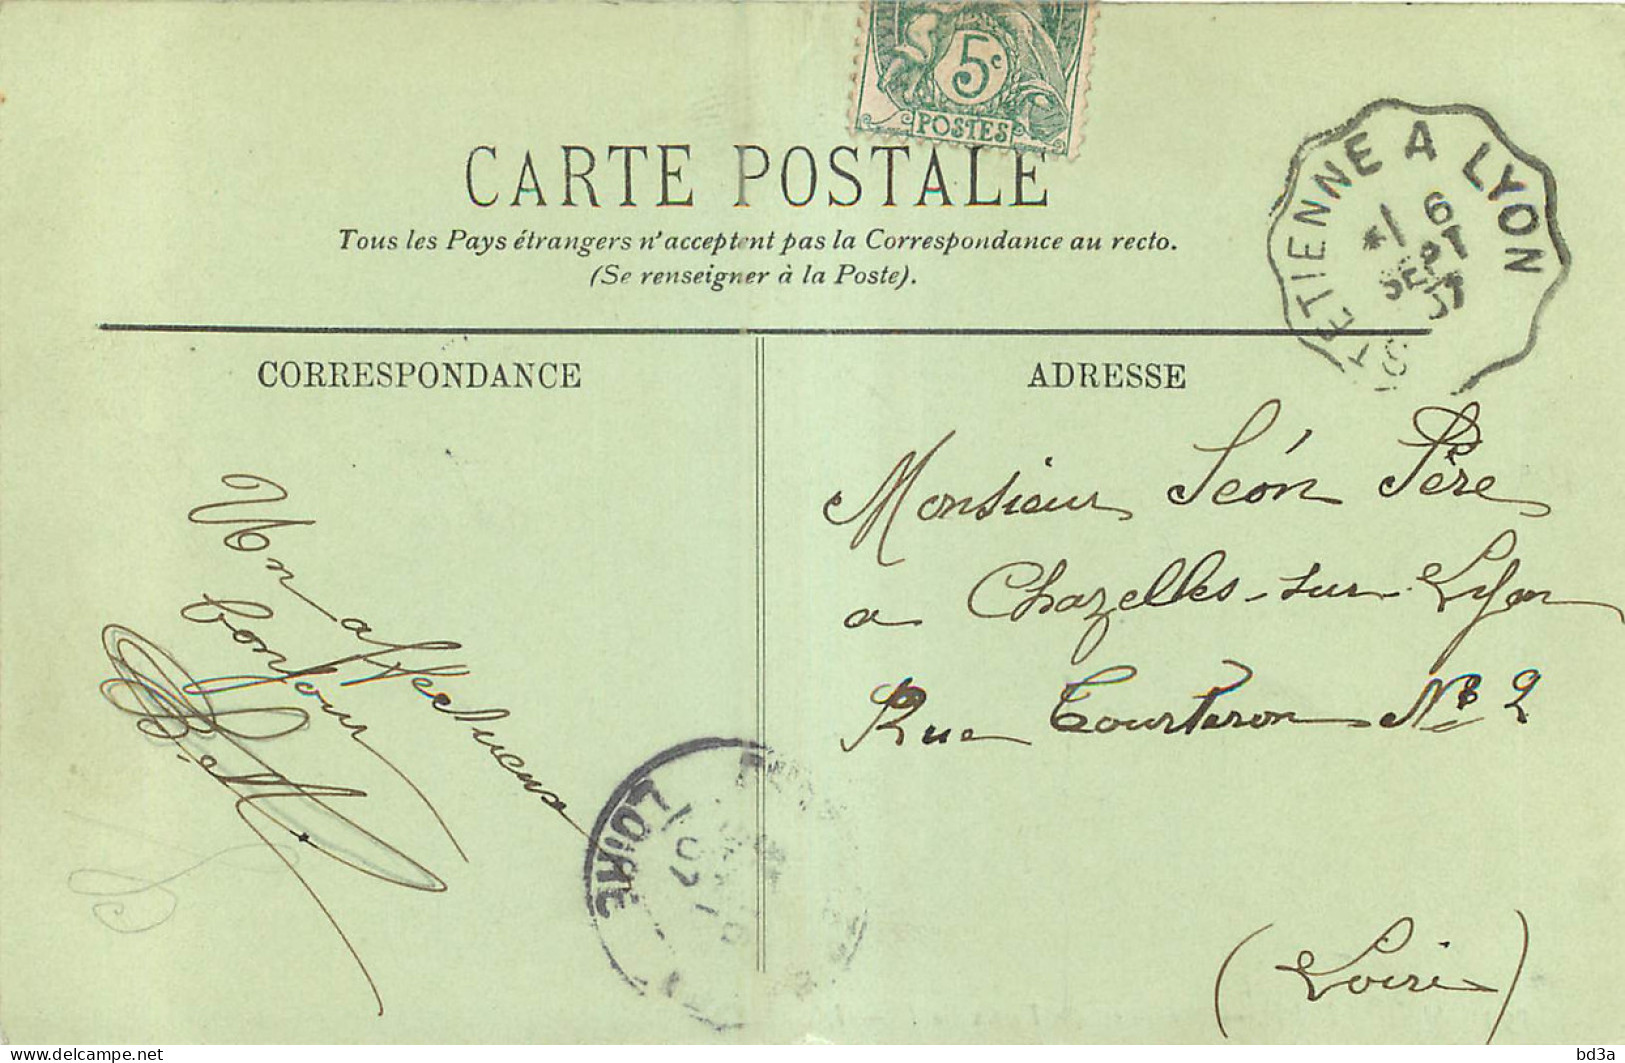 5c
POSTES
CARTE POSTALE
Tous les Pays étrangers n'acceptent pas la Correspondance au recto.
(Se renseigner à la Poste).
ST ETIENNE A LYON
*1 6
SEPT
07
CORRESPONDANCE
ADRESSE
Un affectueux
bonjour
Monsieur Léon Père
a Chazelles-sur-Lyon
Rue Tourteron No 2
(Loire)
LOIRE
07
delcampe.net
bd3a